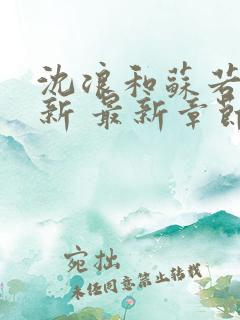 沈浪和蘇若
新 最新章節
宛拙
未经同意禁止转载